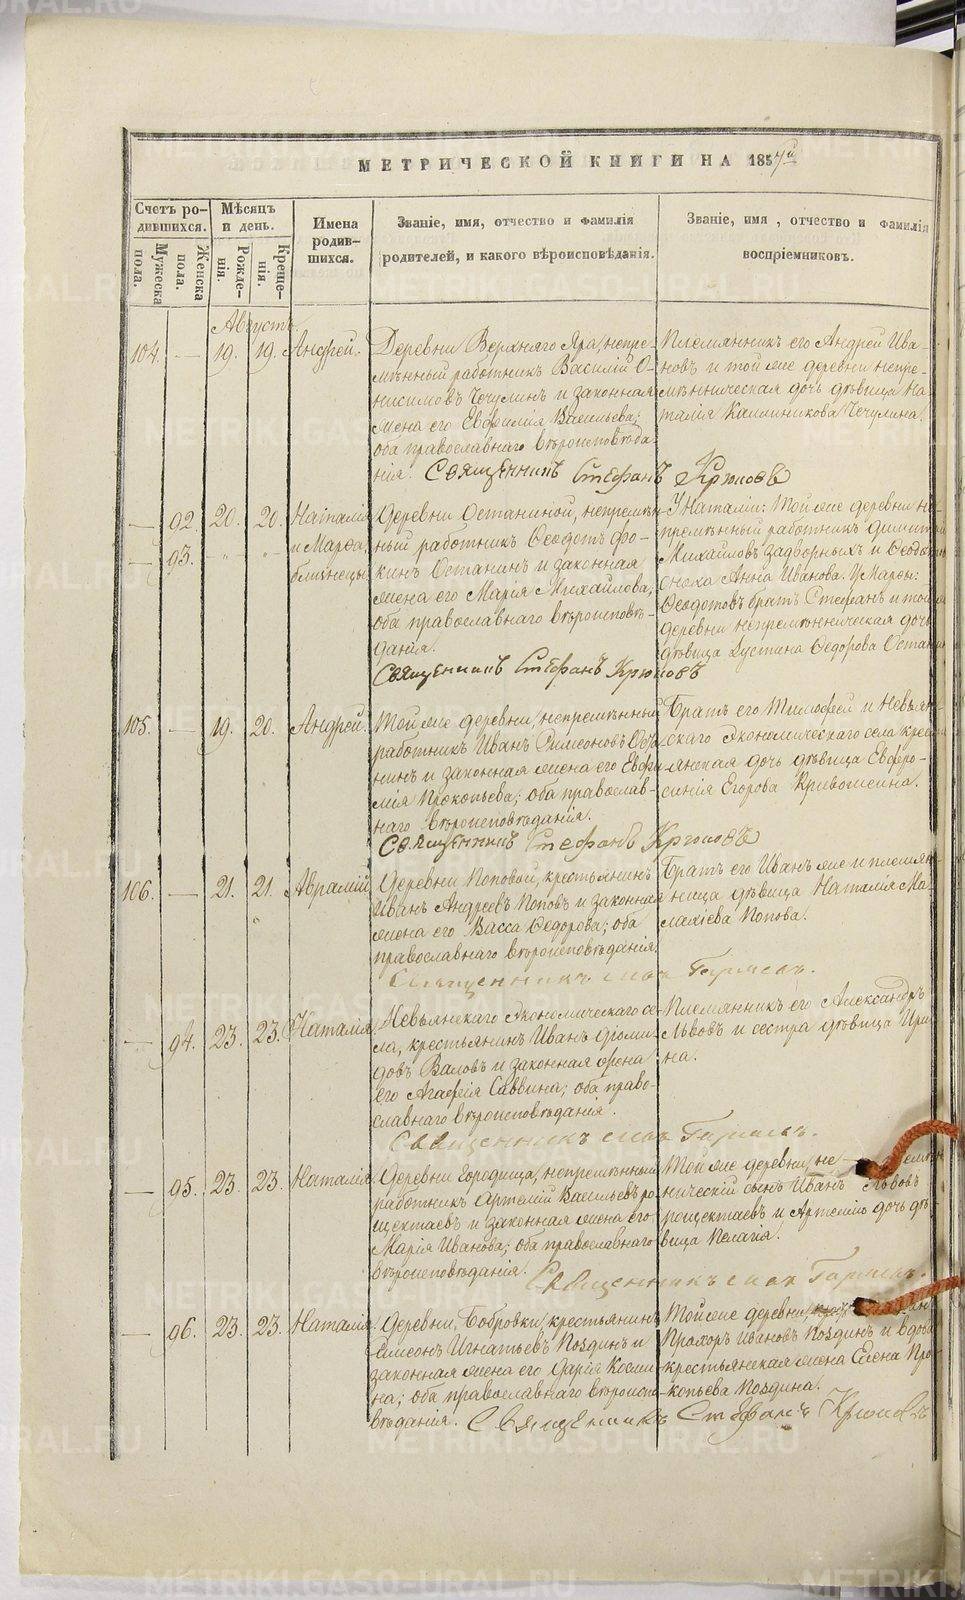 МЕТРИЧЕСКОЙ КНИГИ НА 1857й
Счетъ ро-
дившихся.
Мужеска
пола.
Женска
пола.
Мѣсяцъ
и день.
Рожде-
нія.
Креще-
нія.
Имена
родив-
шихся.
Званіе, имя, отчество и фамилія
родителей, и какого вѣроисповѣданія.
Званіе, имя, отчество и фамилія
воспріемниковъ.
Августъ.
104. — 19. 19. Андрей.
Деревни Верхняго Яра, непре-
мѣнный работникъ Василій О-
нисимовъ Чечулинъ и законная
жена его Евфимія Васильева;
оба православнаго вѣроисповѣда-
нія.
Племянникъ его Андрей Ива-
новъ и той же деревни непре-
мѣнническая дочь дѣвица На-
талія Калинникова Чечулина.
Священникъ Стефанъ Крюковъ
— 92. 20. 20. Наталія
— 93. " " и Марѳа,
близнецы
Деревни Останиной, непремѣн-
ный работникъ Ѳеодотъ Фо-
кинъ Останинъ и законная
жена его Марія Михайлова,
оба православнаго вѣроисповѣ-
данія.
У Наталіи: Той же деревни не-
премѣнный работникъ Димитрій
Михайловъ Задворныхъ и
Анна Иванова. У Марѳы:
Ѳеодотовъ братъ Стефанъ и той же
деревни непремѣнническая дочь
дѣвица Іустина Ѳедорова
Священникъ Стефанъ Крюковъ
105. — 19. 20. Андрей.
Той же деревни, непремѣнный
работникъ Иванъ Симеоновъ Оста-
нинъ и законная жена его Евфи-
мія Прокопьева; оба православ-
наго вѣроисповѣданія.
Братъ его Тимофей и Невьян-
скаго Экономическаго села крестья-
янская дочь дѣвица Евфро-
синія Егорова Кривошеина.
Священникъ Стефанъ Крюковъ
106. — 21. 21. Аврамій
Деревни Поповой, крестьянинъ
Иванъ Андреевъ Поповъ и законная
жена его Васса Ѳедорова; оба
православнаго вѣроисповѣданія.
Братъ его Иванъ же и племян-
ница дѣвица Наталія Ма-
лахіева Попова.
Священникъ
— 94. 23. 23. Наталія
Невьянскаго Экономическаго се-
ла, крестьянинъ Иванъ Діоми-
довъ Валовъ и законная жена
его Агафія Саввина; оба право-
славнаго вѣроисповѣданія.
Племянникъ его Александръ
Львовъ и сестра дѣвица Ири-
на.
Священникъ
— 95. 23. 23. Наталія
Деревни Городища, непремѣнный
работникъ Артемій Васильевъ Ро-
щектаевъ и законная жена его
Марія Иванова; оба православнаго
вѣроисповѣданія.
Той же деревни, не
нническій сынъ Иванъ Львовъ
Рощектаевъ и Артемію дочь дѣ-
вица Пелагія.
Священникъ
— 96. 23. 23. Наталія
Деревни, Бобровки, крестьянинъ
Симеонъ Игнатьевъ Поздинъ и
законная жена его Дарія Косми-
на; оба православнаго вѣроиспо-
вѣданія.
Той же деревни,
Прохоръ Ивановъ Поздинъ и вдова
крестьянская жена Елена Про-
копьева Поздина.
Священникъ Стефанъ Крюковъ